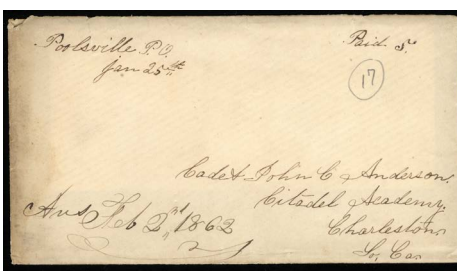 Poolsville P.O.
Jan 25th
Paid 5
17
Cadet John C Anderson.
Citadel Academy.
Charleston
So, Car
Ans Feb 2nd, 1862